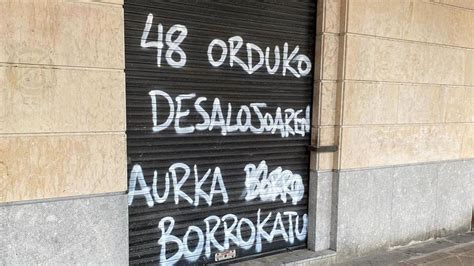 48 ORDUKO
DESALOJOAREN
AURKA BORRO
BORROKATU